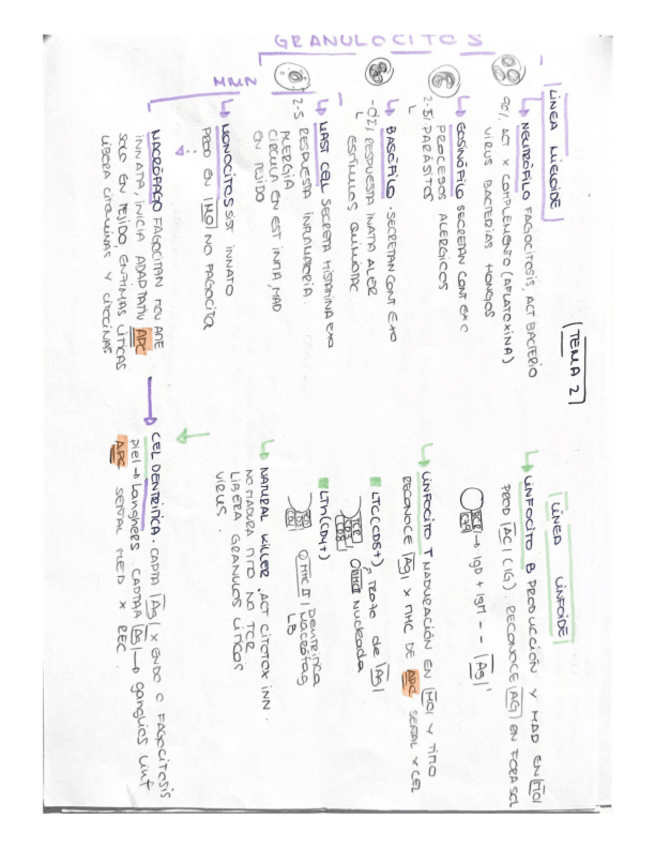 TEMA 2
GRANULOCITOS
LINEA MIELOIDE
↳ NEUTRÓFILO FAGOCITOSIS, ACT BACTERIO
90% ACT X COMPLEMENTO (AFLATOXINA)
VIRUS BACTERIAS HONGOS
↳ EOSINÓFILO SECRETAN CONT EXC
PROCESOS ALERGICOS
2-5% PARÁSITOS
↳ BASÓFILO. SECRETAN CONT EXO
RESPUESTA INATA ALER
ESTÍMULOS QUIMIOTAC.
↳ MAST CELL SECRETA HISTAMINA EXO
2-5 RESPUESTA INFLAMATORIA.
ALERGIA
CIRCULA EN EST INMA, MAD
EN TEJIDO
MMN
↳ MONOCITOS SIST INNATO
PROD EN MO NO FAGOCITA
MACRÓFAGO FAGOCITAN
INNATA, INICIA ADAPTATIV APC
SOLO EN TEJIDO, ENZIMAS LITICAS
LIBERA CITOQUINAS Y CITOCINAS
LINEA LINFOIDE
↳ LINFOCITO B PRODUCCIÓN Y MAD EN MO
PROD AC (IG). RECONOCE AG EN FORMA SOL
BCR → IgD + IgM -- Ag
↳ LINFOCITO T MADURACIÓN EN MO Y TIMO
RECONOCE Ag X MHC DE APC SEÑAL Y CEL
LTC (CD8+), PROTE de Ag
TCR CD3 CD8 MHCI Nucleada
LTH (CD4+)
CD4 MHC II Dentritica
Macrofag
LB
↳ NATURAL KILLER. ACT CITOTOX INN.
NO MADURA TIMO NO TCR
LIBERA GRANULOS LITICOS
VIRUS.
CEL DENTRITICA. CAPTA Ag X ENDO O FAGOCITOSIS
piel → Langhers CAPTAA Ag → ganglios Linf
APC SEÑAL MED X REC.